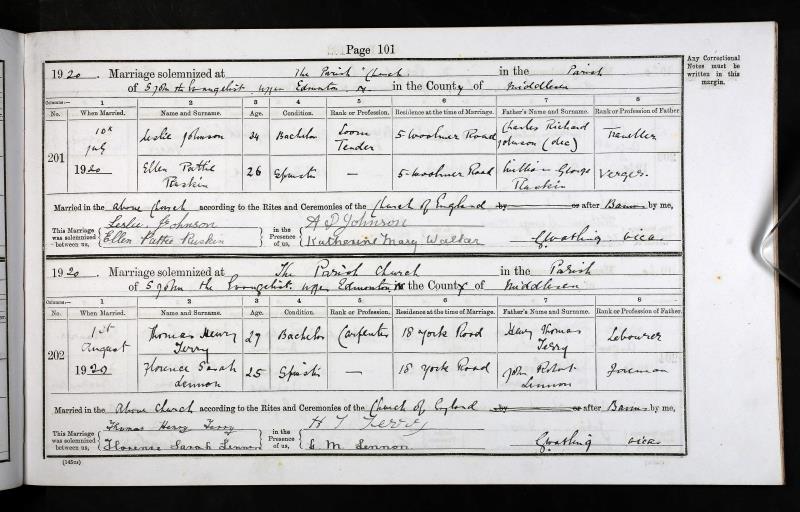 Page 101
Any Correctional
Notes must be
written in this
margin.
1920. Marriage solemnized at The Parish Church in the Parish
of S John the Evangelist Upper Edmonton in the County of Middlesex
Columns:— 1 2 3 4 5 6 7 8
No. When Married. Name and Surname. Age. Condition. Rank or Profession. Residence at the time of Marriage. Father's Name and Surname. Rank or Profession of Father.
201 10th July 1920 Leslie Johnson 24 Bachelor Loom Tender 5 Woolmer Road Charles Richard Johnson (dec) Traveller
Ellen Pattie Raskin 26 Spinster — 5 Woolmer Road William George Raskin Verger
Married in the above Church according to the Rites and Ceremonies of the Church of England by or after Banns by me,
This Marriage was solemnized between us, Leslie Johnson in the Presence of us, A D Johnson
Ellen Pattie Ruskin Katherine Mary Walker Vicar
1920. Marriage solemnized at The Parish Church in the Parish
of S John the Evangelist Upper Edmonton in the County of Middlesex
Columns:— 1 2 3 4 5 6 7 8
No. When Married. Name and Surname. Age. Condition. Rank or Profession. Residence at the time of Marriage. Father's Name and Surname. Rank or Profession of Father.
202 1st August 1920 Thomas Henry Terry 29 Bachelor Carpenter 18 York Road Henry Thomas Terry Labourer
Florence Sarah Lennon 25 Spinster — 18 York Road John Robert Lennon Foreman
Married in the Above Church according to the Rites and Ceremonies of the Church of England by or after Banns by me,
This Marriage was solemnized between us, Thomas Henry Terry in the Presence of us, H T Terry
Florence Sarah Lennon L M Lennon Vicar